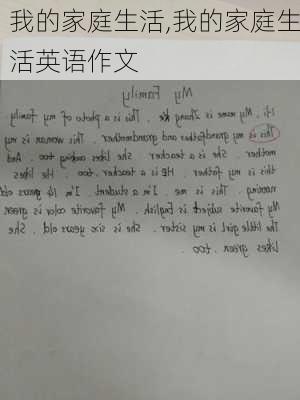 我的家庭生活,我的家庭生
活英语作文
My Family
Hi, My name is Zhang ke. This is a photo of my family
This is my grandfather and grandmother. This woman is my
mother. She is a teacher. She likes cooking too. And
this is my father. He is a teacher, too. He likes
running. This is me. I'm a student. I'm 14 years old
My favorite subject is English. My favorite color is green
The little girl is my sister. She is six years old. She
likes green, too.